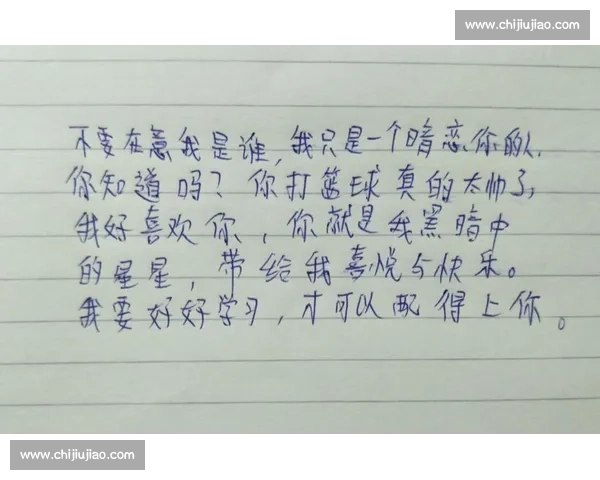 www.chijiujiao.com
不要在意我是谁,我只是一个暗恋你的人.
你知道吗?你打篮球真的太帅了,
我好喜欢你,你就是我黑暗中
的星星,带给我喜悦与快乐。
我要好好学习,才可以配得上你。
www.chijiujiao.com